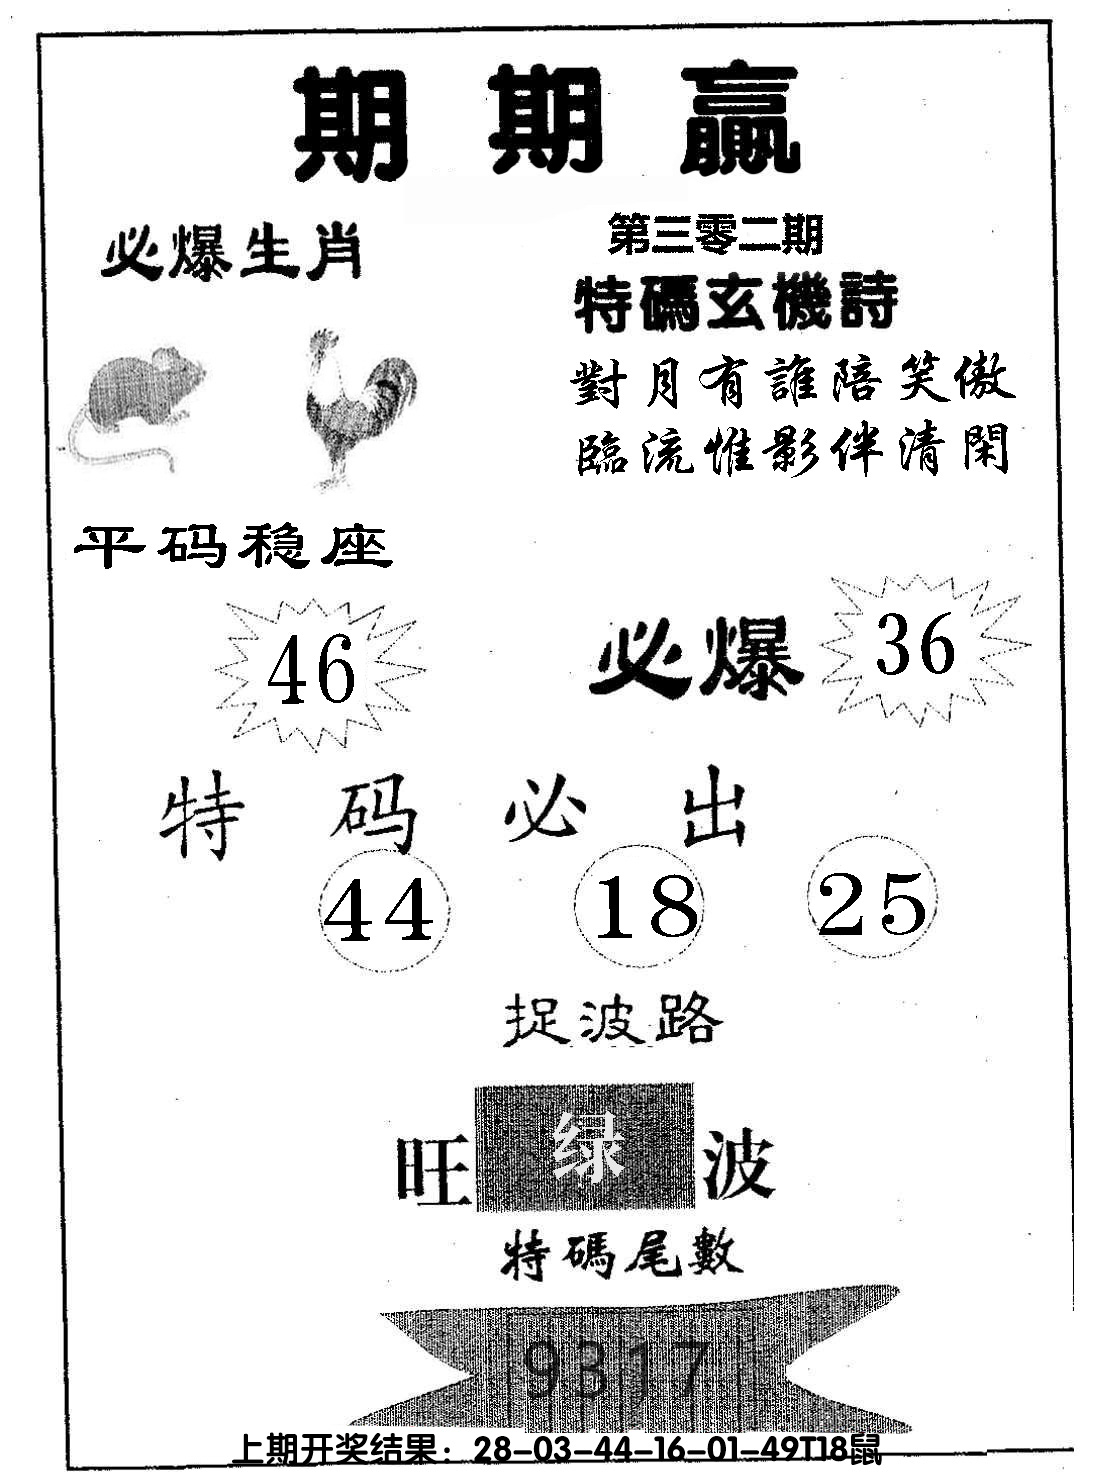 期期赢
必爆生肖
第三零二期
特碼玄機詩
對月有誰陪笑傲
臨流惟影伴清閑
平码稳座
46
必爆 36
特码必出
44 18 25
捉波路
旺 绿 波
特碼尾數
9317
上期开奖结果：28-03-44-16-01-49T18鼠